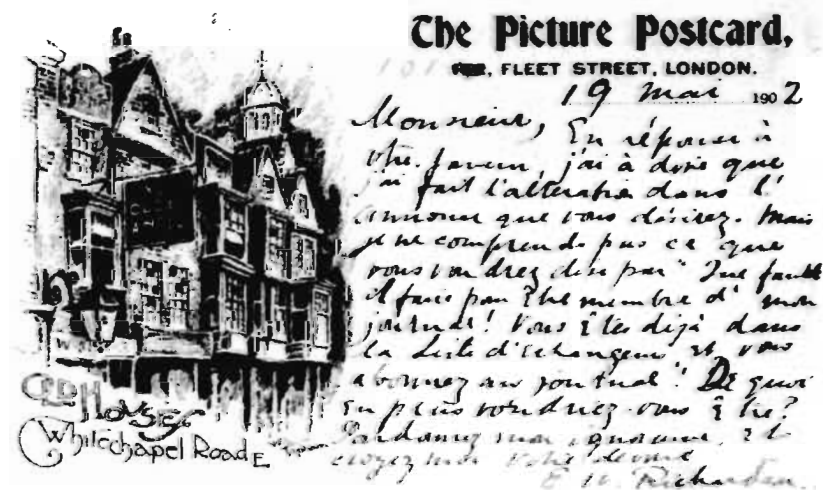 The Picture Postcard,
FLEET STREET, LONDON.
19 mai 1902
Monsieur, En réponse à
favour, j'ai à dire que
j'ai fait l'alteration dans l'
annonce que vous désirez. Mais
je ne comprends pas ce que
vous voudrez dire par "Que faut
il faire pour être membre d' mon
journal! Vous êtes déjà dans
la liste d'échangeurs, et vous
abonnez au journal! De quoi
en plus voudriez-vous être?
Pardonnez mon ignorance, et
croyez moi votre dévoué
E. W. Richardson
OLD HOUSES
Whitechapel Road